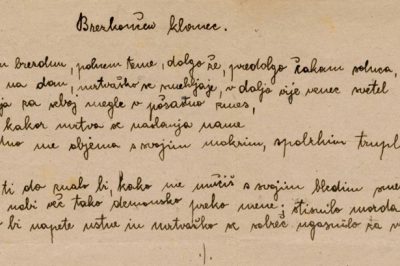 Brezkončen klanec.
brezdnu, polnem teme, dolgo že, predolgo čakam solnca,
na dan, mrtvaško se smehljaje, v daljo vije venec svetel
za seboj megle v pošastno
kakor mrtva se naslanja name
me objema s svojim mokrim, spolzkim trupl
ti do znalo bi, kako me mučiš s svojim bledim sme
več tako demonsko preko mene; stisnilo morda
bi napete ustne in mrtvaško se zabreč ugasnilo za v